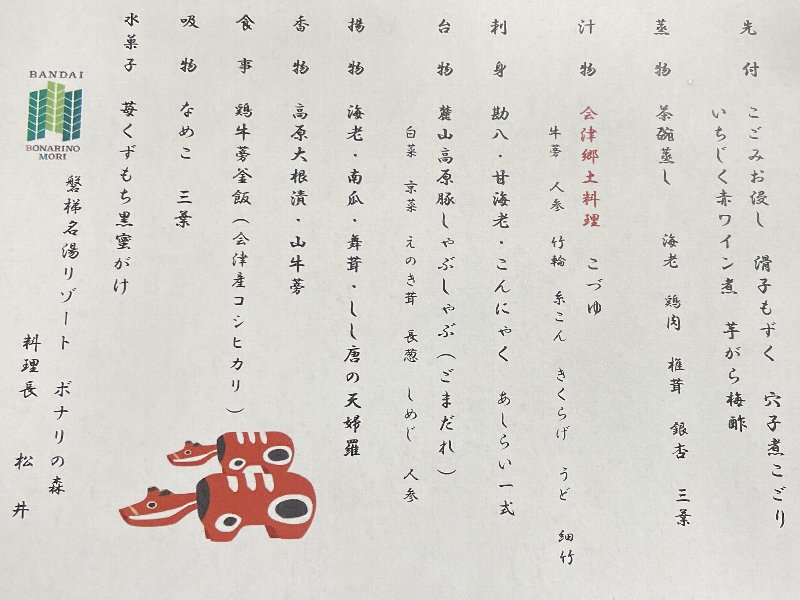 先付 こごみお浸し 滑子もずく 穴子煮こごり
いちじく赤ワイン煮 芋がら梅酢
蒸物 茶碗蒸し 海老 鶏肉 椎茸 銀杏 三葉
汁物 会津郷土料理 こづゆ
牛蒡 人参 竹輪 糸こん きくらげ うど 細竹
刺身 勘八・甘海老・こんにゃく あしらい一式
台物 麓山高原豚しゃぶしゃぶ(ごまだれ)
白菜 京菜 えのき茸 長葱 しめじ 人参
揚物 海老・南瓜・舞茸・しし唐の天婦羅
香物 高原大根漬・山牛蒡
食事 鶏牛蒡釜飯(会津産コシヒカリ)
吸物 なめこ 三葉
水菓子 苺くずもち黒蜜がけ
BANDAI
BONARINO
MORI
磐梯名湯リゾート ボナリの森
料理長 松井